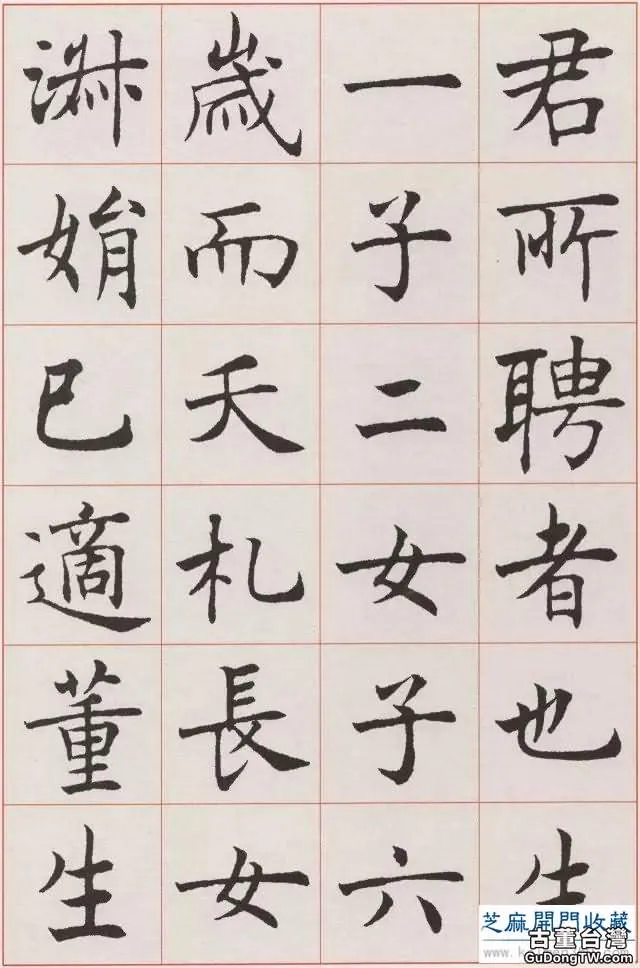 君所聘者也生
一子二女子六
歲而夭札長女
淑娟已適董生
芝麻開門收藏
古董台灣
GuDongTW.com